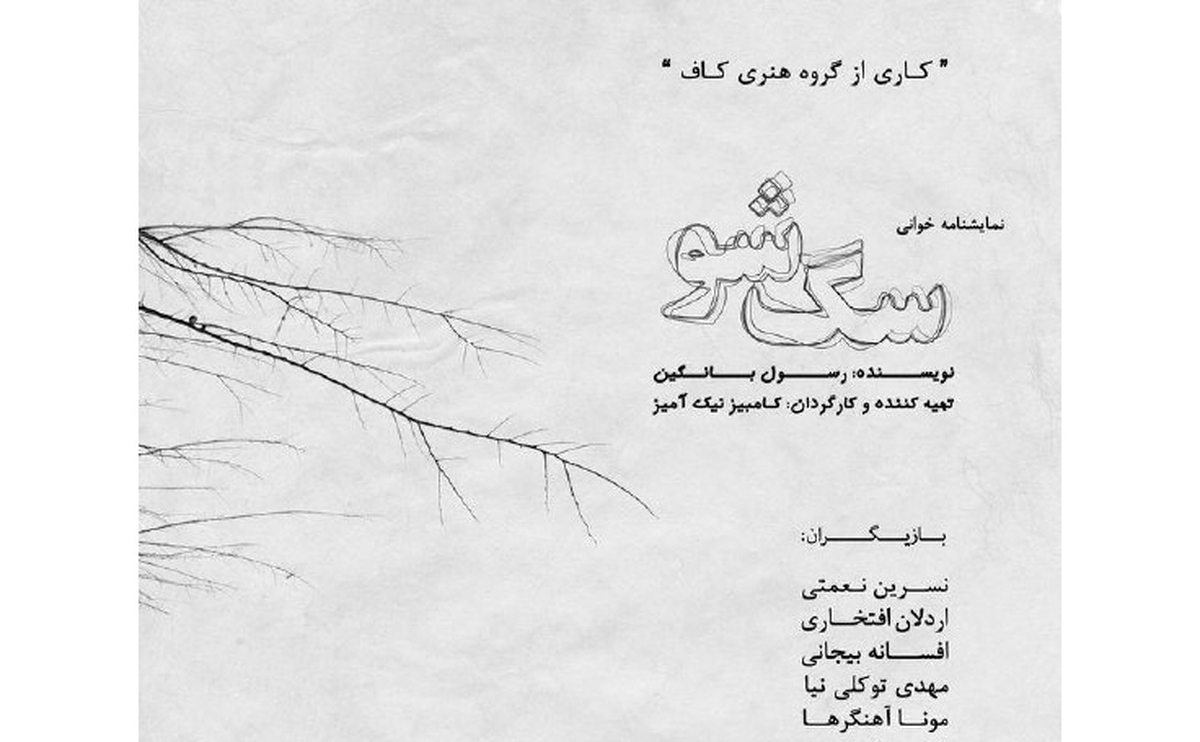 " کاری از گروه هنری کاف "
نمایشنامه خوانی
سگ شو
نویسنده: رسول بانگین
تهیه کننده و کارگردان: کامبیز نیک آمیز
بازیگران:
نسرین نعمتی
اردلان افتخاری
افسانه بیجانی
مهدی توکلی نیا
مونا آهنگرها